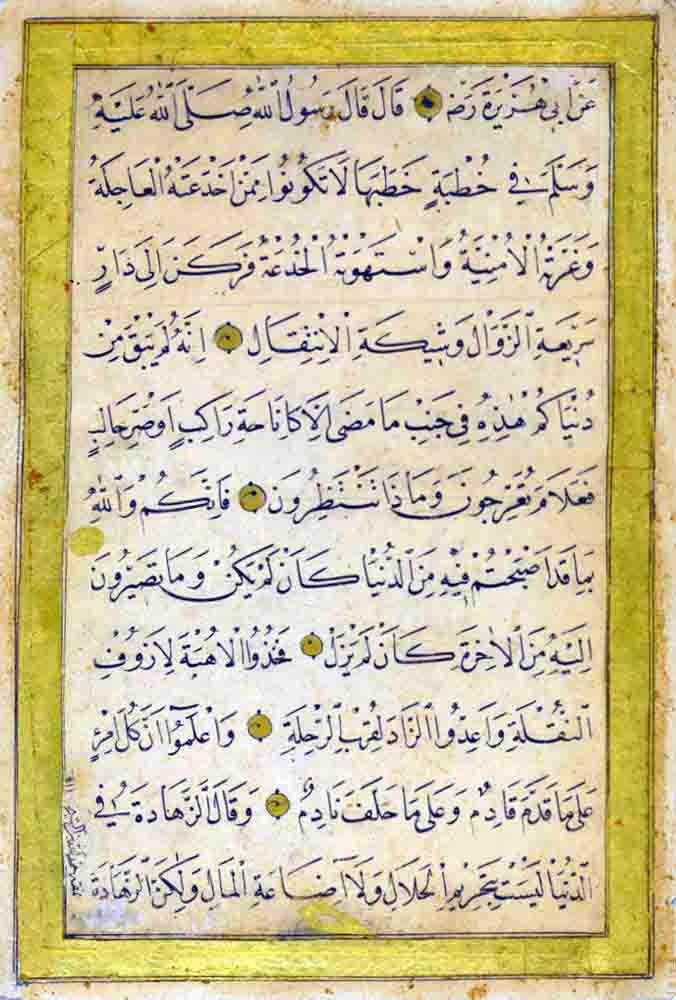 عَنْ اَبِى هُرَيْرَةَ رَضِ قَالَ قَالَ رَسُولُ اللّٰهِ صَلَّى اللّٰهُ عَلَيْهِ
وَسَلَّمَ فِي خُطْبَةٍ خَطَبَهَا لَا تَكُونُوا مِمَّنْ اخْدَعَتْهُ الْعَاجِلَةُ
وَغَرَّتْهُ الْاُمْنِيَّةُ وَاسْتَهْوَتْهُ الْخُدْعَةُ فَرَكَنَ اِلَى دَارٍ
سَرِيعَةِ الزَّوَالِ وَشِيكَةِ الْاِنْتِقَالِ اِنَّهُ لَمْ يَبْقَ مِنْ
دُنْيَاكُمْ هٰذِهِ فِى جَنْبِ مَا مَضَى اِلَّا كَاِنَاحَةِ رَاكِبٍ اَوْ صَرِّ حَالِبٍ
فَعَلَامَ تُعَرِّجُونَ وَمَاذَا تَنْتَظِرُونَ فَاِنَّكُمْ وَاللّٰهِ
بِمَا قَدْ اَصْبَحْتُمْ فِيْهِ مِنَ الدُّنْيَا كَاَنْ لَمْ يَكُنْ وَمَا تَصِيرُونَ
اِلَيْهِ مِنَ الْاٰخِرَةِ كَاَنْ لَمْ يَزَلْ فَخُذُوا الْاُهْبَةَ لِاَزُوفِ
النُّقْلَةِ وَاَعِدُّوا الزَّادَ لِقُرْبِ الرِّحْلَةِ وَاعْلَمُوا اَنَّ كُلَّ امْرِئٍ
عَلَى مَا قَدَّمَ قَادِمٌ وَعَلَى مَا خَلَفَ نَادِمٌ وَقَالَ الزَّهَادَةُ فِي
الدُّنْيَا لَيْسَتْ بِتَحْرِيمِ الْحَلَالِ وَلَا اِضَاعَةِ الْمَالِ وَلٰكِنَّ الزَّهَادَةَ